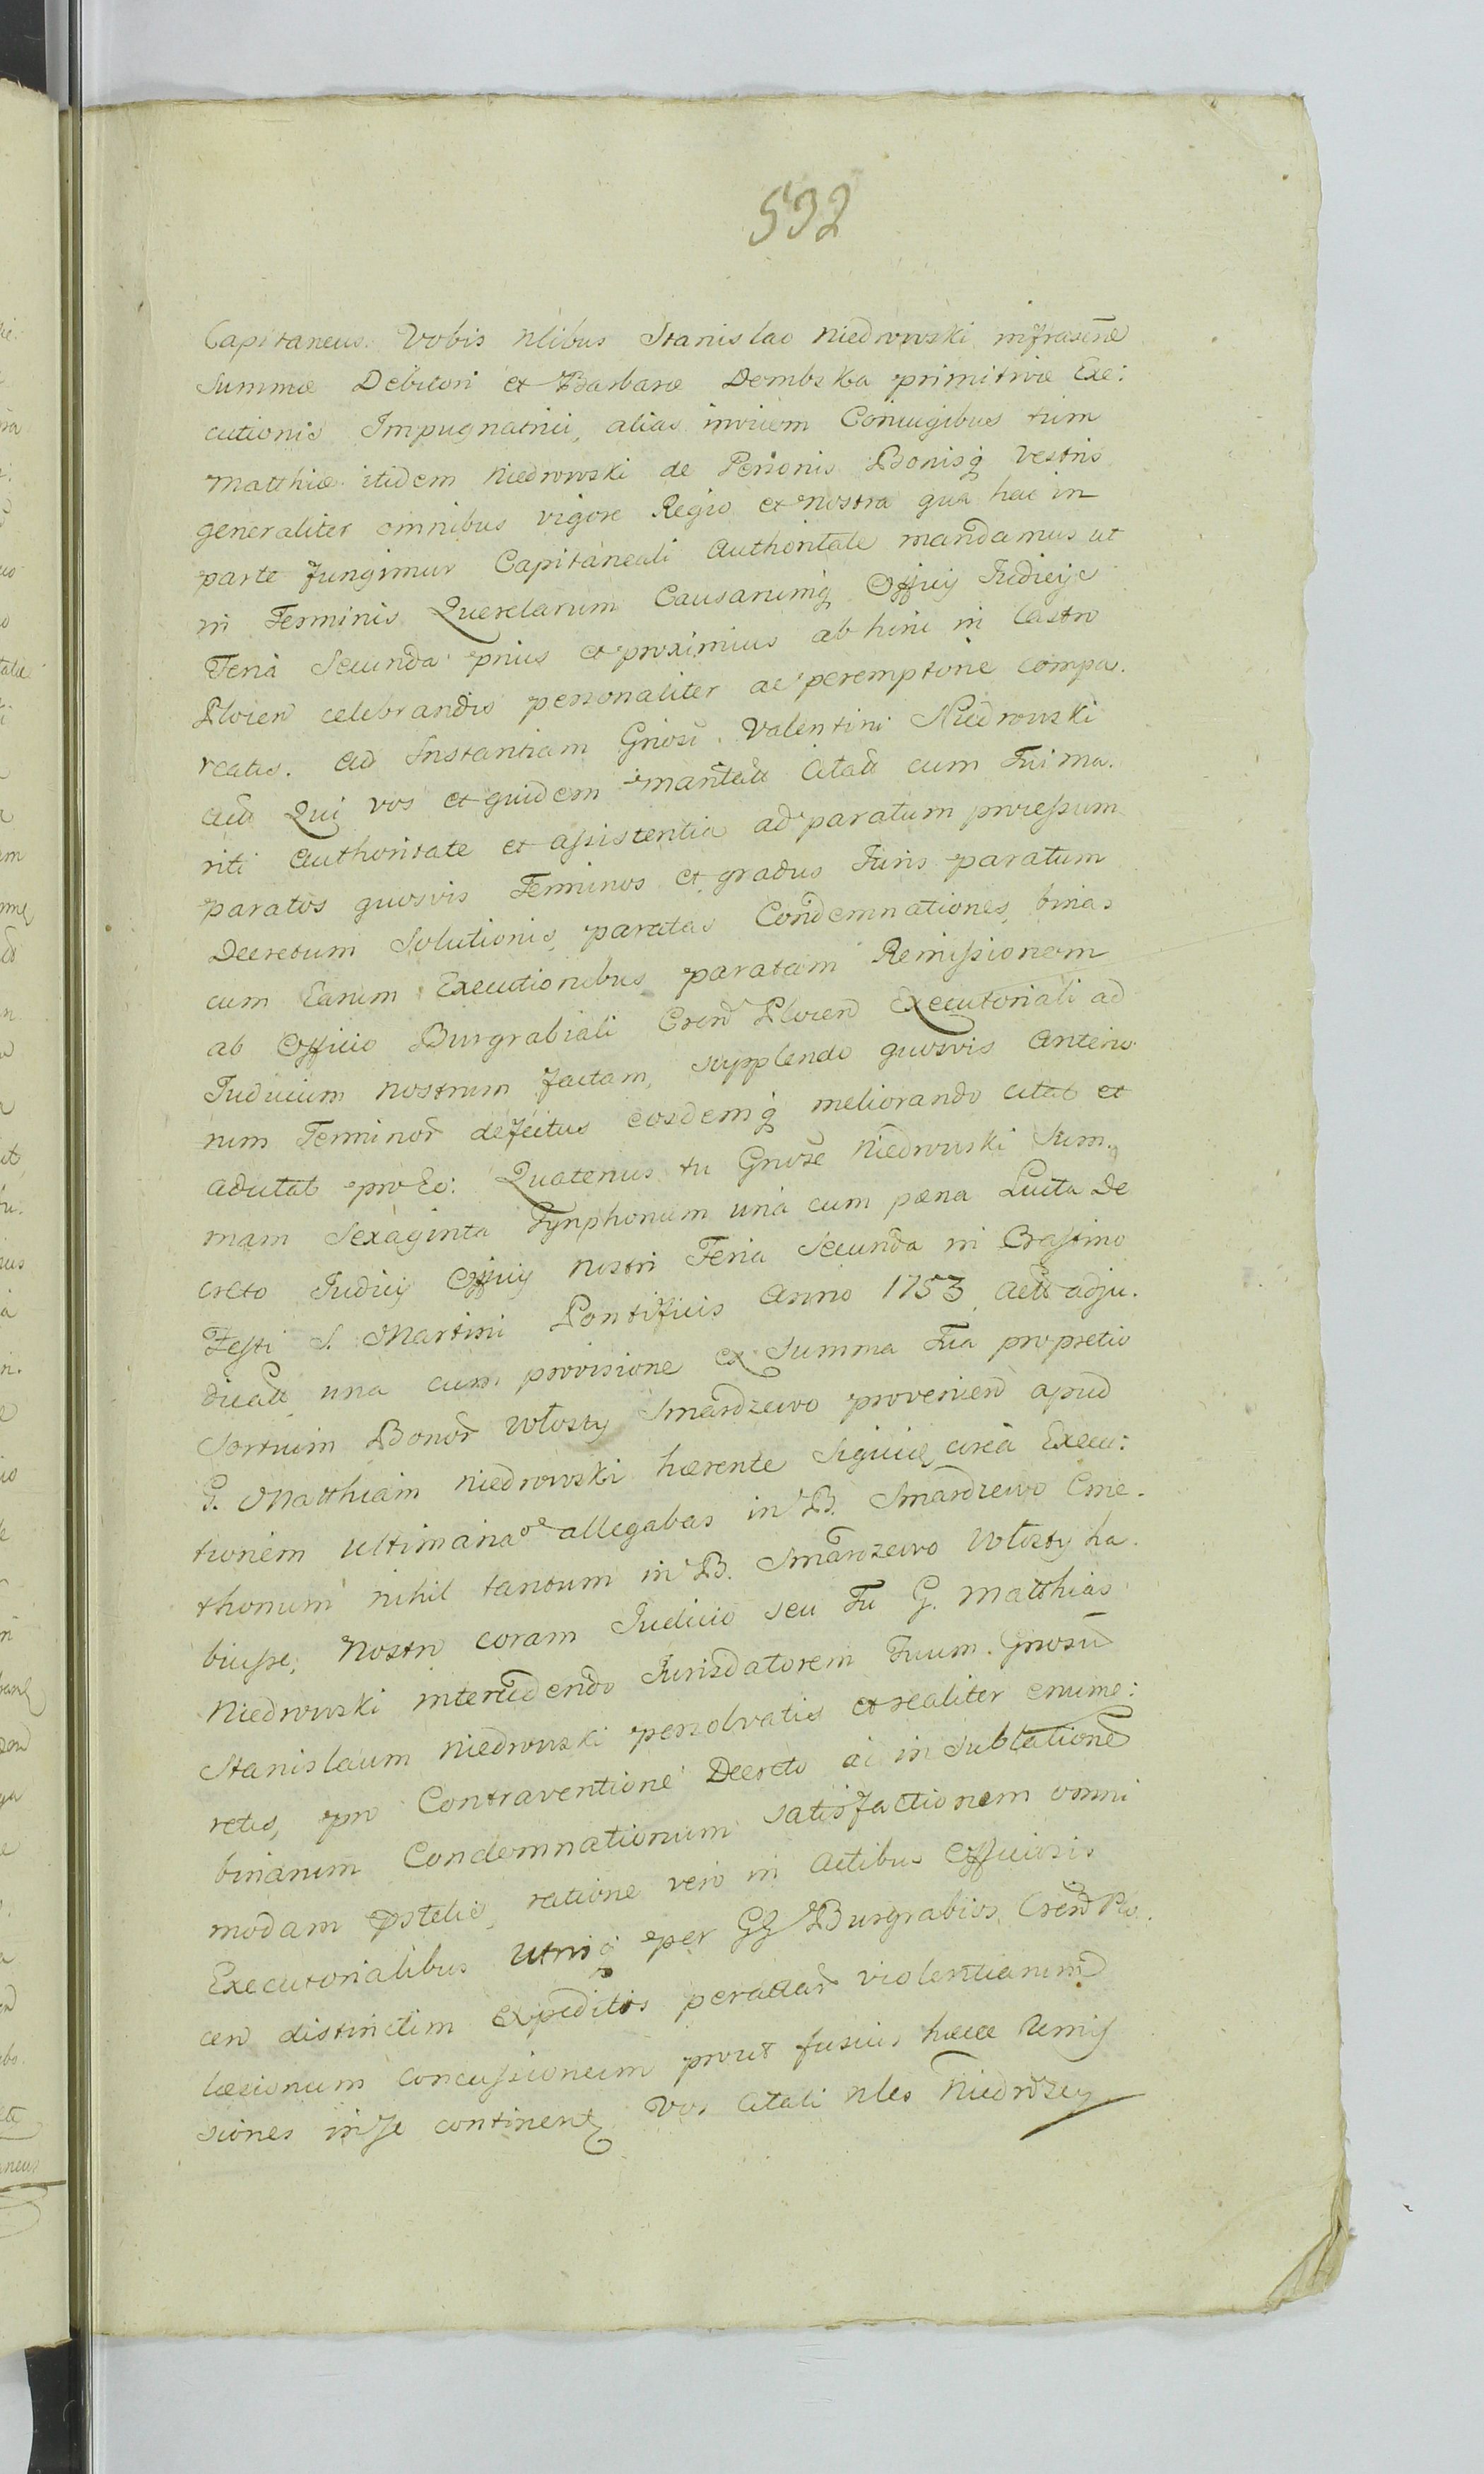 532
Capitaneus. Vobis Nlibus Stanislao Niedrowski infrascrae
Summæ Debitori et Barbaræ Dembska primitivæ Exe:
cutionis Impugnatrici, alias invicem Coniugibus tum
Matthiæ itidem Niedrowski de Personis Bonisq vestris
generaliter omnibus vigore Regio et nostra qua hac in
parte fungimur Capitaneali Authoritate mandamus ut
in Terminis Querelarum Causarumq Officij Judicijq
Feria Secunda prius et proximius ab hinc in Castro
Plocen celebrandis personaliter ac peremptorie compa.
reatis. Ad Instantiam Gnosi. Valentini Niedrowski
Act Qui vos et quidem maritatt Citatt cum Tui ma.
riti Authoritate et assistentia ad paratum processum
paratos quosvis Terminos et gradus Juris paratum
Decretum Solutionis, paratas Condemnationes, binas
cum Earum Executionibus paratam Remissionem
ab Officio Burgrabiali Crend Plocen Executoriali ad
Judicium nostrum factam, supplendo quosvis Anterio
rum Terminor defectus eosdemq meliorando citat et
adcitat pro Eo: Quatenus tu Gnose Niedrowski Sum.
mam Sexaginta Tynphonum una cum pæna Lucta De
creto Judicij Officij nostri Feria Secunda in Crastino
Festi S. Martini Pontificis Anno 1753 Actt adju.
dicatt una cum provisione ex Summa Tua pro pretio
Sortium Bonor Włosty Smardzewo provenien apud
G. Matthiam Niedrowski hærente Siquid circa Execu:
tionem ultimariæ allegabas in B. Smardzewo Cme.
thonum nihil tantum in B. Smardzewo Włosty ha.
buisse, Nostro coram Judicio seu Tu G. Matthias
Niedrowski intercedendo Jurisdatorem Tuum. Gnosu
Stanislaum Niedrowski persolvatis et realiter enume:
retis, pro Contraventione Decreto ac in sublatione
binarum Condemnationum satisfactionem omni
modam pstetis, ratione vero in Actibus Officiosis
Executorialibus Utrisq per GG Burgrabios Crend Plo.
cen distinctim expeditis peractar violentiarum
læsionum concussionum prout fusius hæce Remis
siones in se continent, Vos Citati Nles Niedrdzcy